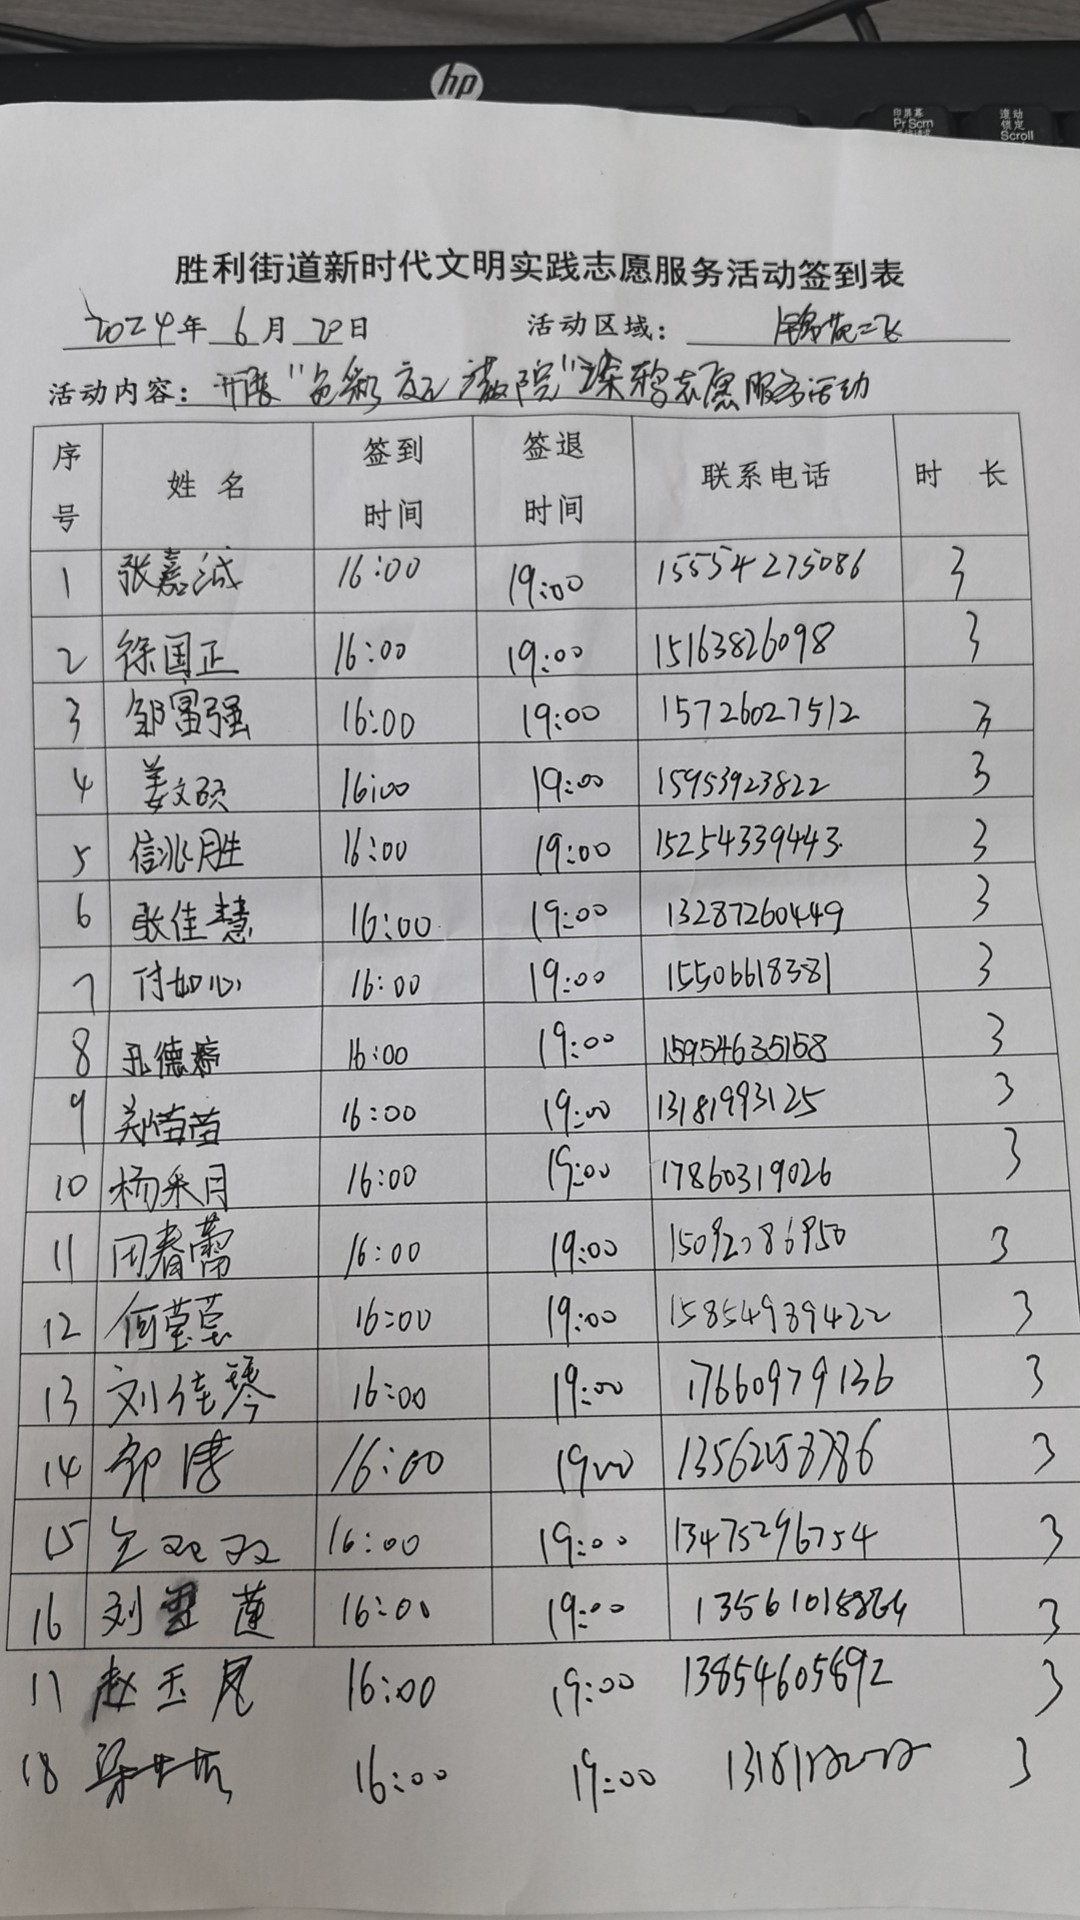 hp
印屏幕
Pr Scrn
滚动
锁定
Scroll
胜利街道新时代文明实践志愿服务活动签到表
2024年 6月 20日 活动区域: 锦苑二
活动内容: 开展"色彩 院"涂鸦志愿服务活动
序号 姓名 签到时间 签退时间 联系电话 时长
1 张嘉诚 16:00 19:00 15554275086 3
2 徐国正 16:00 19:00 15163826098 3
3 邹富强 16:00 19:00 15726027512 3
4 姜文硕 16:00 19:00 15953923822 3
5 信兆胜 16:00 19:00 15254339443 3
6 张佳慧 16:00 19:00 13287260449 3
7 付如心 16:00 19:00 15506618381 3
8 孔德婷 16:00 19:00 15954635158 3
9 郑苗苗 16:00 19:00 13181993125 3
10 杨采月 16:00 19:00 17860319026 3
11 田春蕾 16:00 19:00 3
12 何莹莹 16:00 19:00 15854939422 3
13 刘佳琴 16:00 19:00 17660979136 3
14 邹涛 16:00 19:00 3
15 双双 16:00 19:00 13475296754 3
16 刘雪莲 16:00 19:00 3
17 赵玉凤 16:00 19:00 13854605692 3
18 16:00 19:00 3